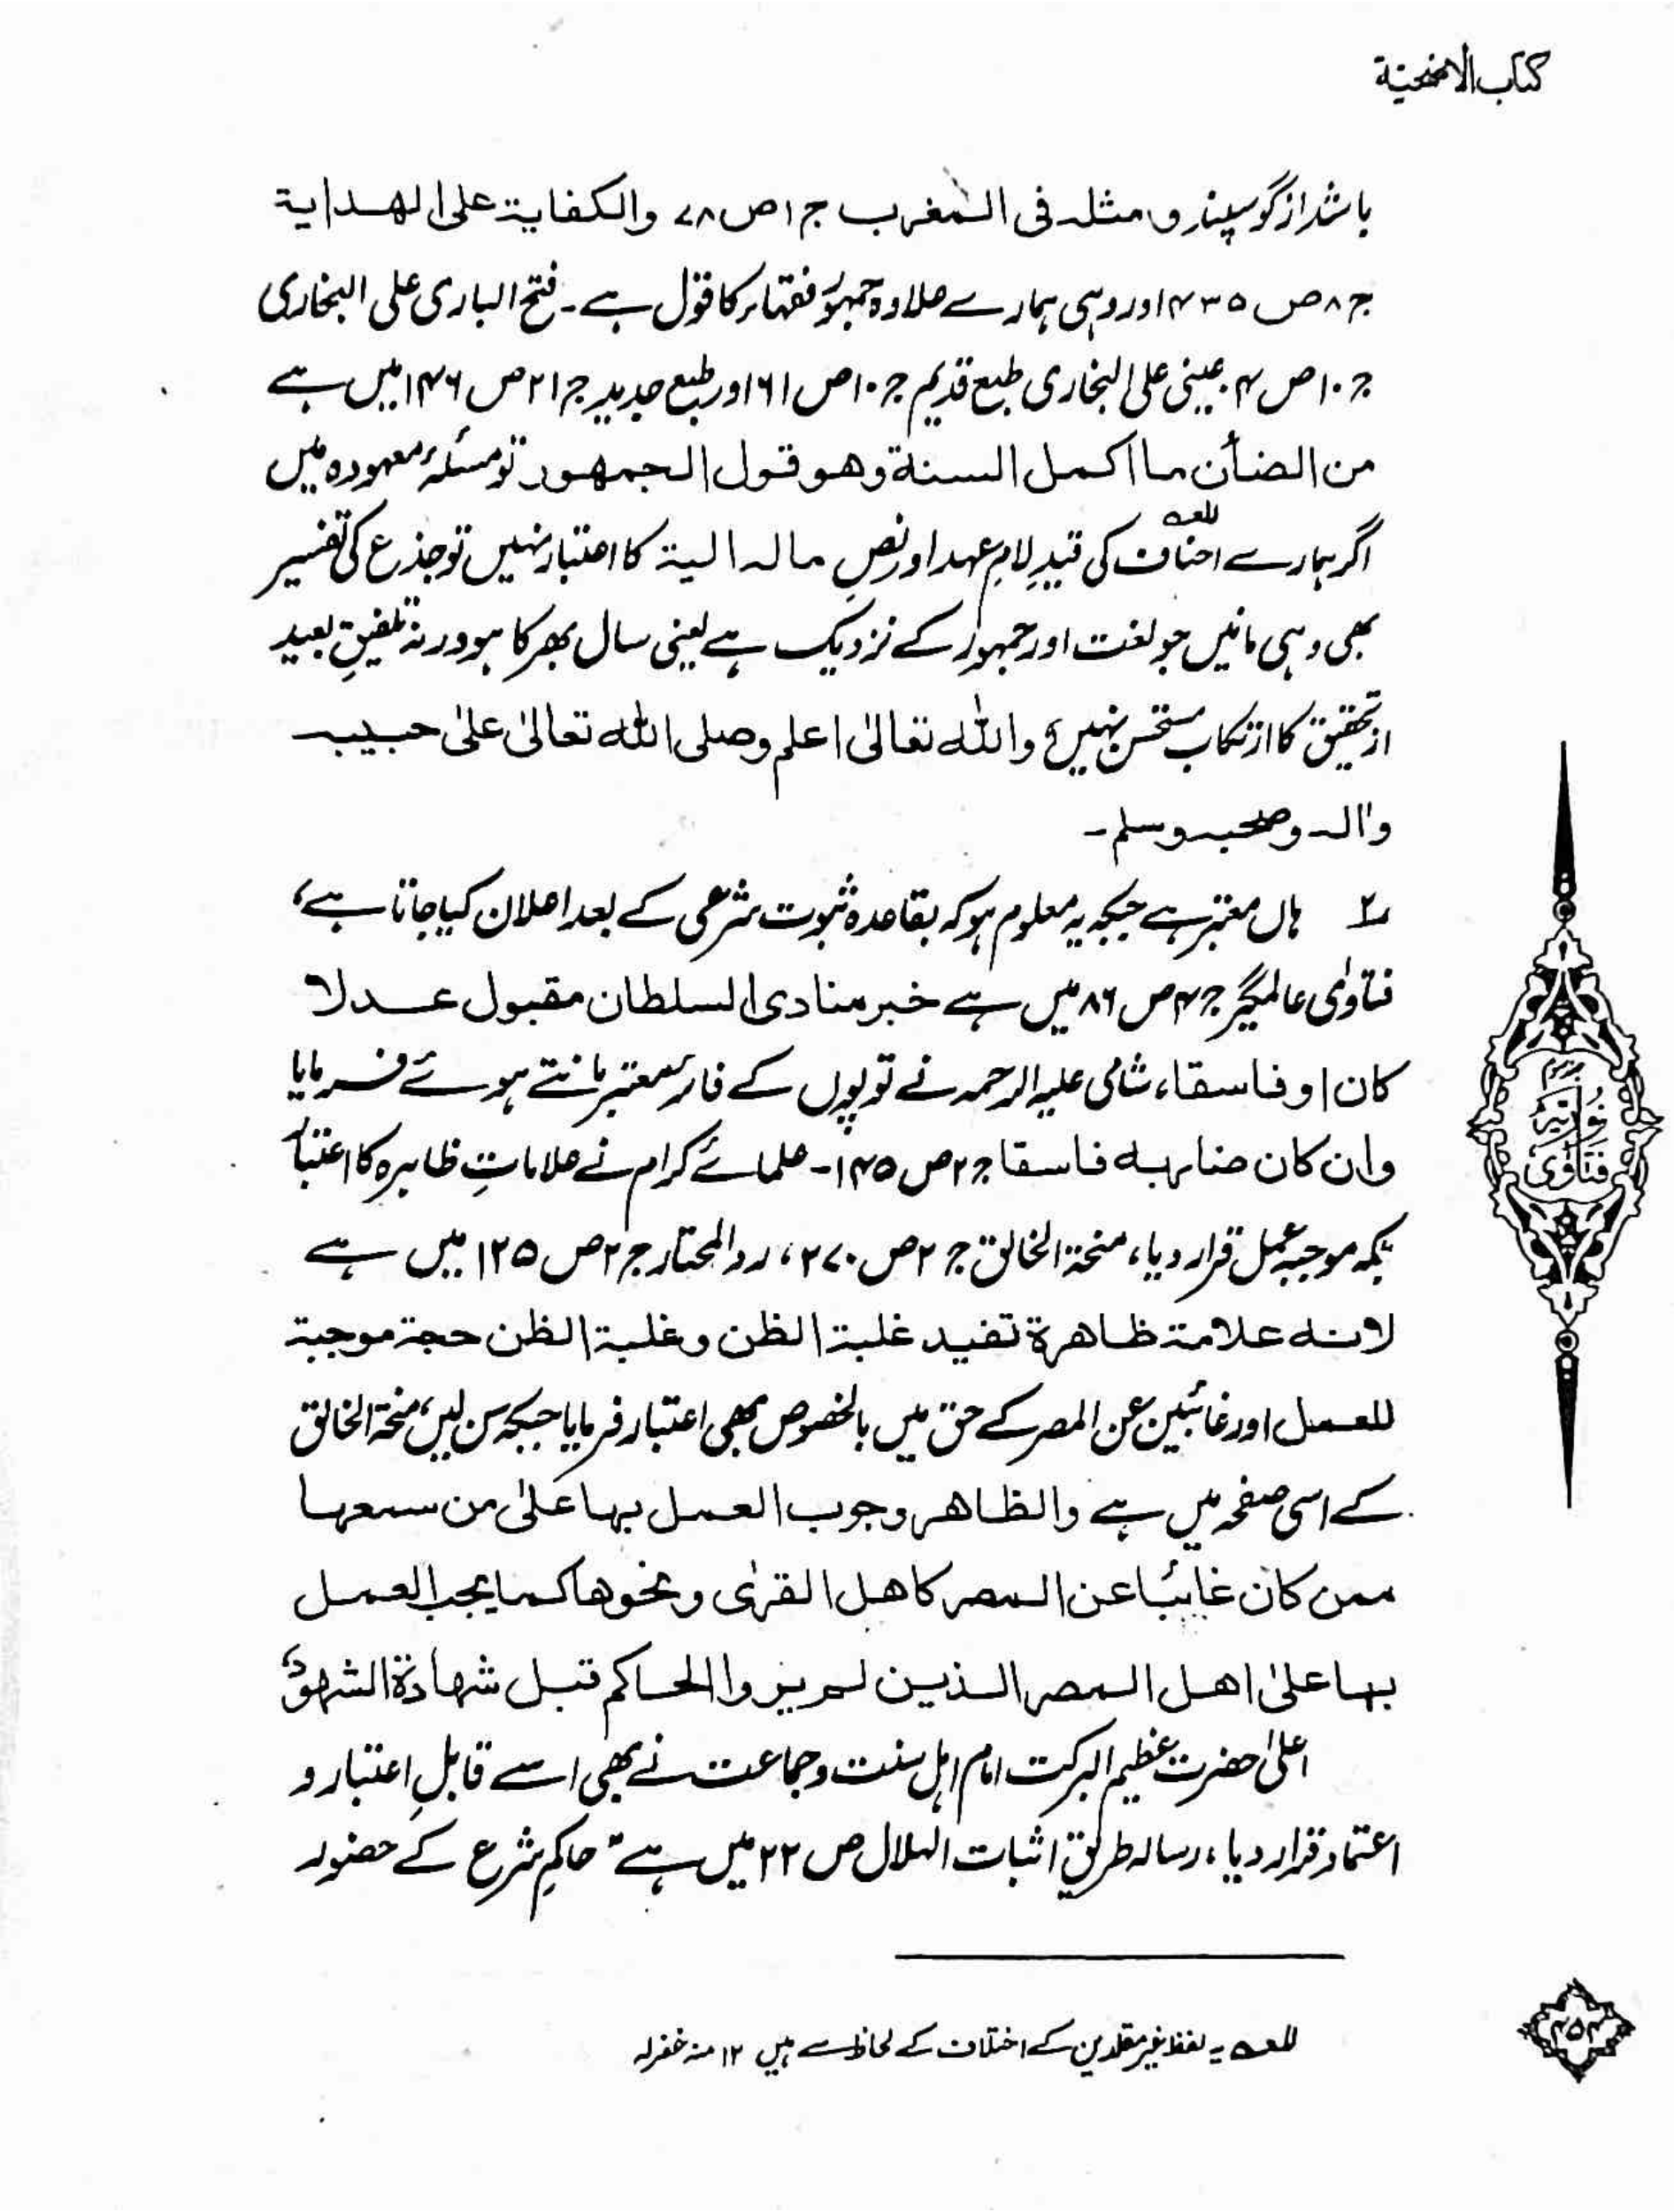 کتاب الاضحیة
باشد از گوسپند و مثله فی المغرب ج ۱ ص ۷۸ والکفایة علی الهدایة
ج ۸ ص ۴۳۵ اور وہی ہمارے علاوہ جمہور فقہاء کا قول ہے۔ فتح الباری علی البخاری
ج ۱۰ ص ۴، عینی علی البخاری طبع قدیم ج ۱۰ ص ۱۶۱ اور طبع جدید ج ۲۱ ص ۱۴۶ میں ہے
من الضأن ما اکمل السنة وهو قول الجمهور تو مسئلہ معہودہ میں
اگر ہمارے احناف للعہ کی قیدِ لامِ عہد اور نصِ ماله الیة کا اعتبار نہیں تو جذع کی تفسیر
بھی وہی مانیں جو لغت اور جمہور کے نزدیک ہے یعنی سال بھر کا ہو ورنہ تلفیقِ بعید
از تحقیق کا ارتکاب مستحسن نہیں، واللہ تعالیٰ اعلم وصلی اللہ تعالیٰ علیٰ حبیبہ
واٰلہ وصحبہ وسلم۔
۲ ہاں معتبر ہے جبکہ یہ معلوم ہو کہ بقاعدہ ثبوت شرعی کے بعد اعلان کیا جاتا ہے،
فتاوٰی عالمگیر ج ۴ ص ۸۶ میں ہے خبر منادی السلطان مقبول عدلا
کان او فاسقا، شامی علیہ الرحمہ نے توپوں کے فائر معتبر مانتے ہوئے فرمایا
وان کان ضاربه فاسقا ج ۲ ص ۱۴۵۔ علمائے کرام نے علاماتِ ظاہرہ کا اعتبار
بلکہ موجبِ عمل قرار دیا، منحة الخالق ج ۲ ص ۲۷۰، ردالمحتار ج ۲ ص ۱۲۵ میں ہے
لانه علامة ظاهرة تفید غلبة الظن وغلبة الظن حجة موجبة
للعمل اور غائبین عن المصر کے حق میں بالخصوص بھی اعتبار فرمایا جبکہ سن لیں، منحة الخالق
کے اسی صفحہ میں ہے والظاهر وجوب العمل بها علیٰ من سمعها
ممن کان غائبا عن المصر کاهل القرٰی ونحوها کما یجب العمل
بها علیٰ اهل المصر الذین لم یروا الحاکم قبل شهادة الشهود،
اعلیٰ حضرت عظیم البرکت امام اہل سنت وجماعت نے بھی اسے قابلِ اعتبار و
اعتماد قرار دیا، رسالہ طریق اثبات الہلال ص ۲۲ میں ہے "حاکمِ شرع کے حضور
للعہ یہ لفظ غیر مقلدین کے اختلاف کے لحاظ سے ہیں ۱۲ منہ غفرلہ
فتاوٰی
نوریہ
۴۵۴